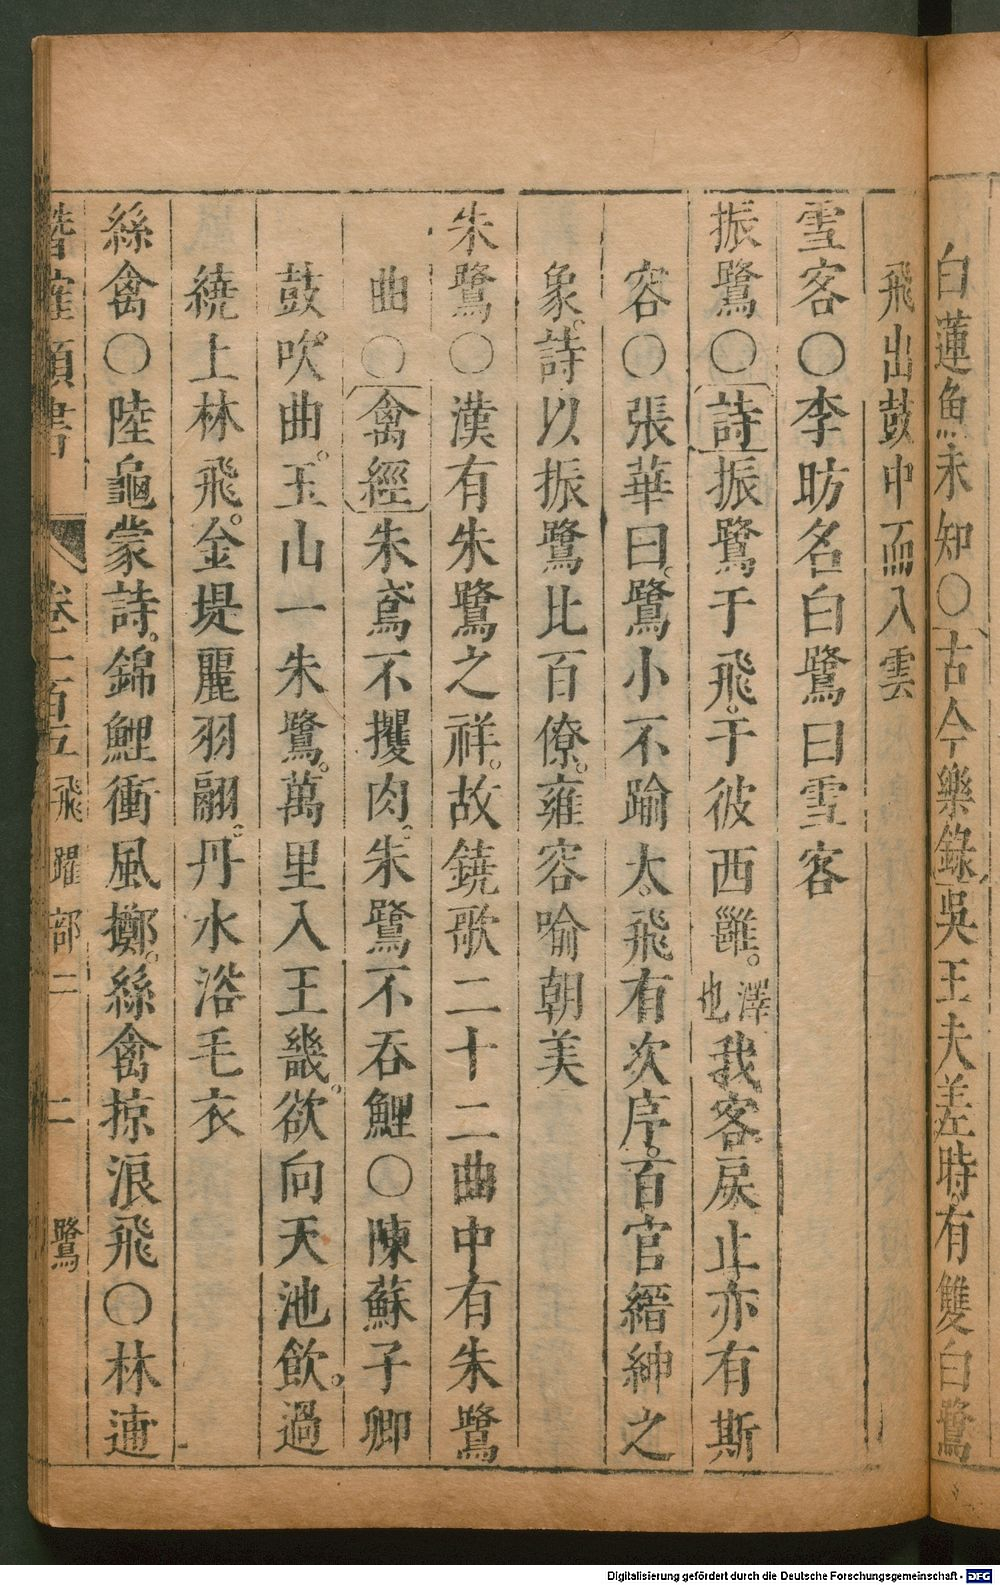 白蓮魚未知〇古今樂錄吳王夫差時有雙白鷺
飛出鼓中而入雲
雪客〇李昉名白鷺曰雪客
振鷺〇詩振鷺于飛。于彼西雝。澤也我客戾止亦有斯
容〇張華曰。鷺小不踰大。飛有次序。百官縉紳之
象。詩以振鷺比百僚。雍容喻朝美
朱鷺〇漢有朱鷺之祥。故鐃歌二十二曲中有朱鷺
曲〇禽經朱鳶不攫肉。朱鷺不吞鯉〇陳蘇子卿
鼓吹曲。玉山一朱鷺。萬里入王畿。欲向天池飲。過
繞上林飛。金堤麗羽翮。丹水浴毛衣
絲禽〇陸龜蒙詩。錦鯉衝風擲。絲禽掠浪飛〇林逋
潛確類書 卷一百五 飛躍部二 二 鷺
Digitalisierung gefördert durch die Deutsche Forschungsgemeinschaft - DFG